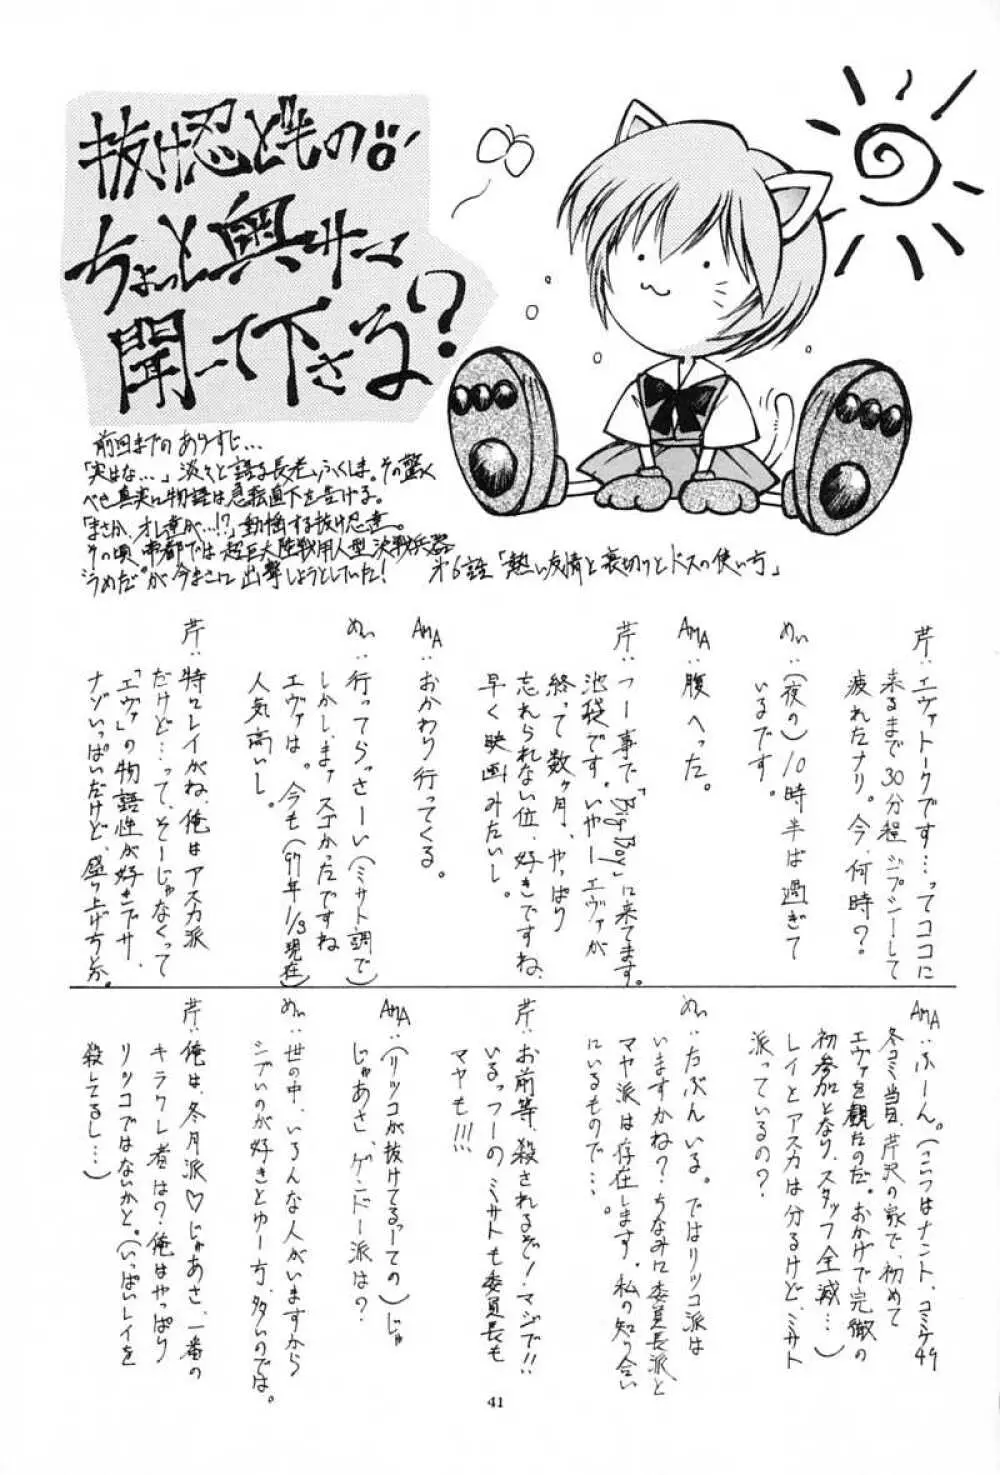 抜け忍どもの
ちょっと奥サマ
聞いて下さる?
前回までのあらすじ…
「実はな…」淡々と語る長老・ふくしま。その驚く
べき真実に物語は急転直下を告げる。
「まさか、オレ達が…!?」動揺する抜け忍達。
その頃、帝都では超巨大陸戦用人型決戦兵器
“うめだ”が今まさに出撃しようとしていた!
才6話「熱い友情と裏切りとドスの使い方」
芹:エヴァトークです…ってココに
来るまで30分程ジプシーして
疲れたナリ。今、何時?
めい:(夜の)10時半ば過ぎて
いるです。
AMA:腹へった。
芹:つー事で「Big Boy」に来てます。
池袋です。いやーエヴァが
終って数ヶ月、やっぱり
忘れられない位、好きですね、
早く映画みたいし。
AMA:おかわり行ってくる。
めい:行ってらっさーい(ミサト調で)
しかし、まァスゴかったですね
エヴァは。今も(97年1/3現在)
人気高いし。
芹:特にレイがね、俺はアスカ派
だけど…って、そーじゃなくって
「エヴァ」の物語性が好きでサ、
ナゾいっぱいだけど、盛り上げ方とか。
AMA:ふーん。(こいつはナント、コミケ49
冬コミ当日、芹沢の家で、初めて
エヴァを観たのだ。おかげで完徹の
初参加となり、スタッフ全滅…)
レイとアスカは分るけど、ミサト
派っているの?
めい:たぶんいる。ではリツコ派は
いますかね?ちなみに委員長派と
マヤ派は存在します。私の知り合い
にいるもので…。
芹:お前等、殺されるぞ!マジで!!
いるっつーのミサトも委員長も
マヤも!!!
AMA:(リツコが抜けてるっての)じゃ
じゃあさ、ゲンドー派は?
めい:世の中、いろんな人がいますから
シブいのが好きとゆー方、多いのでは。
芹:俺は、冬月派♡じゃあさ、一番の
キラワレ者は?俺はやっぱり
リツコではないかと。(いっぱいレイを
殺してるし…)
41